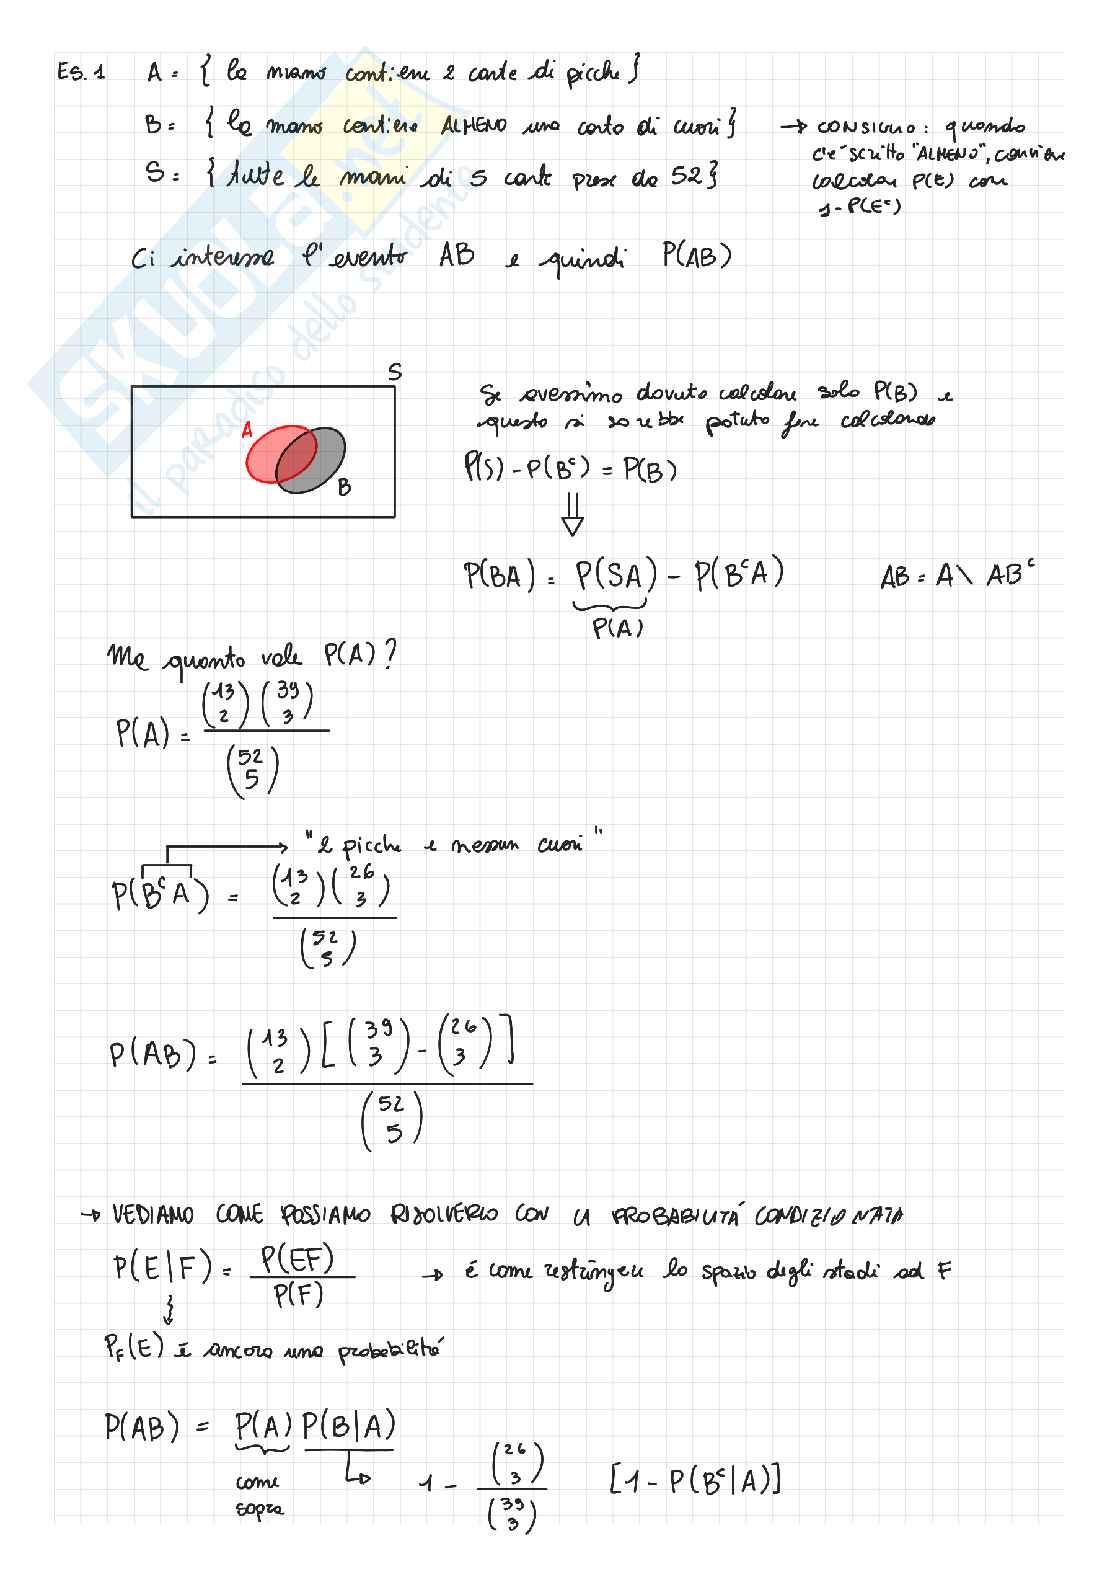 Es. 1 A = { la mano contiene 2 carte di picche }
B = { la mano contiene ALMENO una carta di cuori } → CONSIGLIO: quando
c'è scritto "ALMENO", conviene
S = { tutte le mani di 5 carte prese da 52 } calcolare P(E) con
1 - P(Eᶜ)
Ci interessa l'evento AB e quindi P(AB)
S
A
B
Se avessimo dovuto calcolare solo P(B) e
questo si sarebbe potuto fare calcolando
P(S) - P(Bᶜ) = P(B)
⇓
P(BA) = P(SA) - P(BᶜA) AB = A \ ABᶜ
P(A)
Ma quanto vale P(A)?
P(A) = (13 2)(39 3) / (52 5)
"2 picche e nessun cuori"
P(BᶜA) = (13 2)(26 3) / (52 5)
P(AB) = (13 2)[(39 3) - (26 3)] / (52 5)
→ VEDIAMO COME POSSIAMO RISOLVERLO CON LA PROBABILITÁ CONDIZIONATA
P(E|F) = P(EF) / P(F) → é come restringere lo spazio degli stadi ad F
P_F(E) è ancora una probabilità
P(AB) = P(A) P(B|A)
come
sopra
1 - (26 3) / (39 3) [1 - P(Bᶜ|A)]
SKUOLA.net
il paradiso dello studente